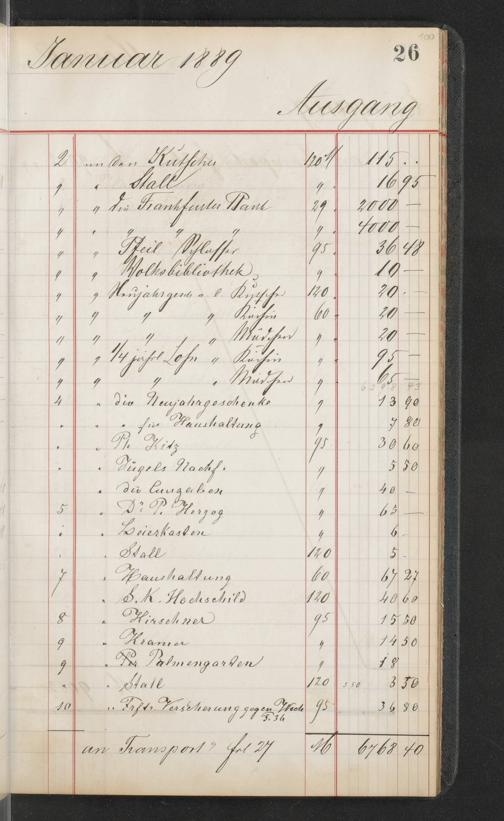 100
Januar 1889 26
Ausgang
2 an den Kutscher 120 M 115 . .
" " Stall " 16 95
" " die Frankfurter Bank 29 2000 —
" " " " " " 4000 —
" " Pfeil Schlosser 95 36 48
" " Volksbibliothek " 10 —
" " Neujahrgesch a. d. Kutscher 120 20 -
" " " " Köchin 60 20 —
" " " " Mädchen " 20 —
" " 1/4 jährl Lohn " Köchin " 95 —
" " " " Mädchen " 65 —
4 " die Neujahrgeschenke " 13 90
. " " für Haushaltung " 7 80
. " Ph. Kitz 95 30 60
. " Nachf. " 5 50
" die " 40 —
5 " Dr P. Herzog " 63 —
" " Leierkasten " 6 -
. " Stall 120 5 -
7 " Haushaltung 60 67 27
" S. K. Hochschild 120 40 60
8 " Hirschner 95 15 50
9 " Kramer " 14 50
9 " Palmengarten " 18
" " Stall 120 3 50 3 50
10 " Frft. Versicherung gegen 95 36 80
an Transport fol 27 M 6768 40